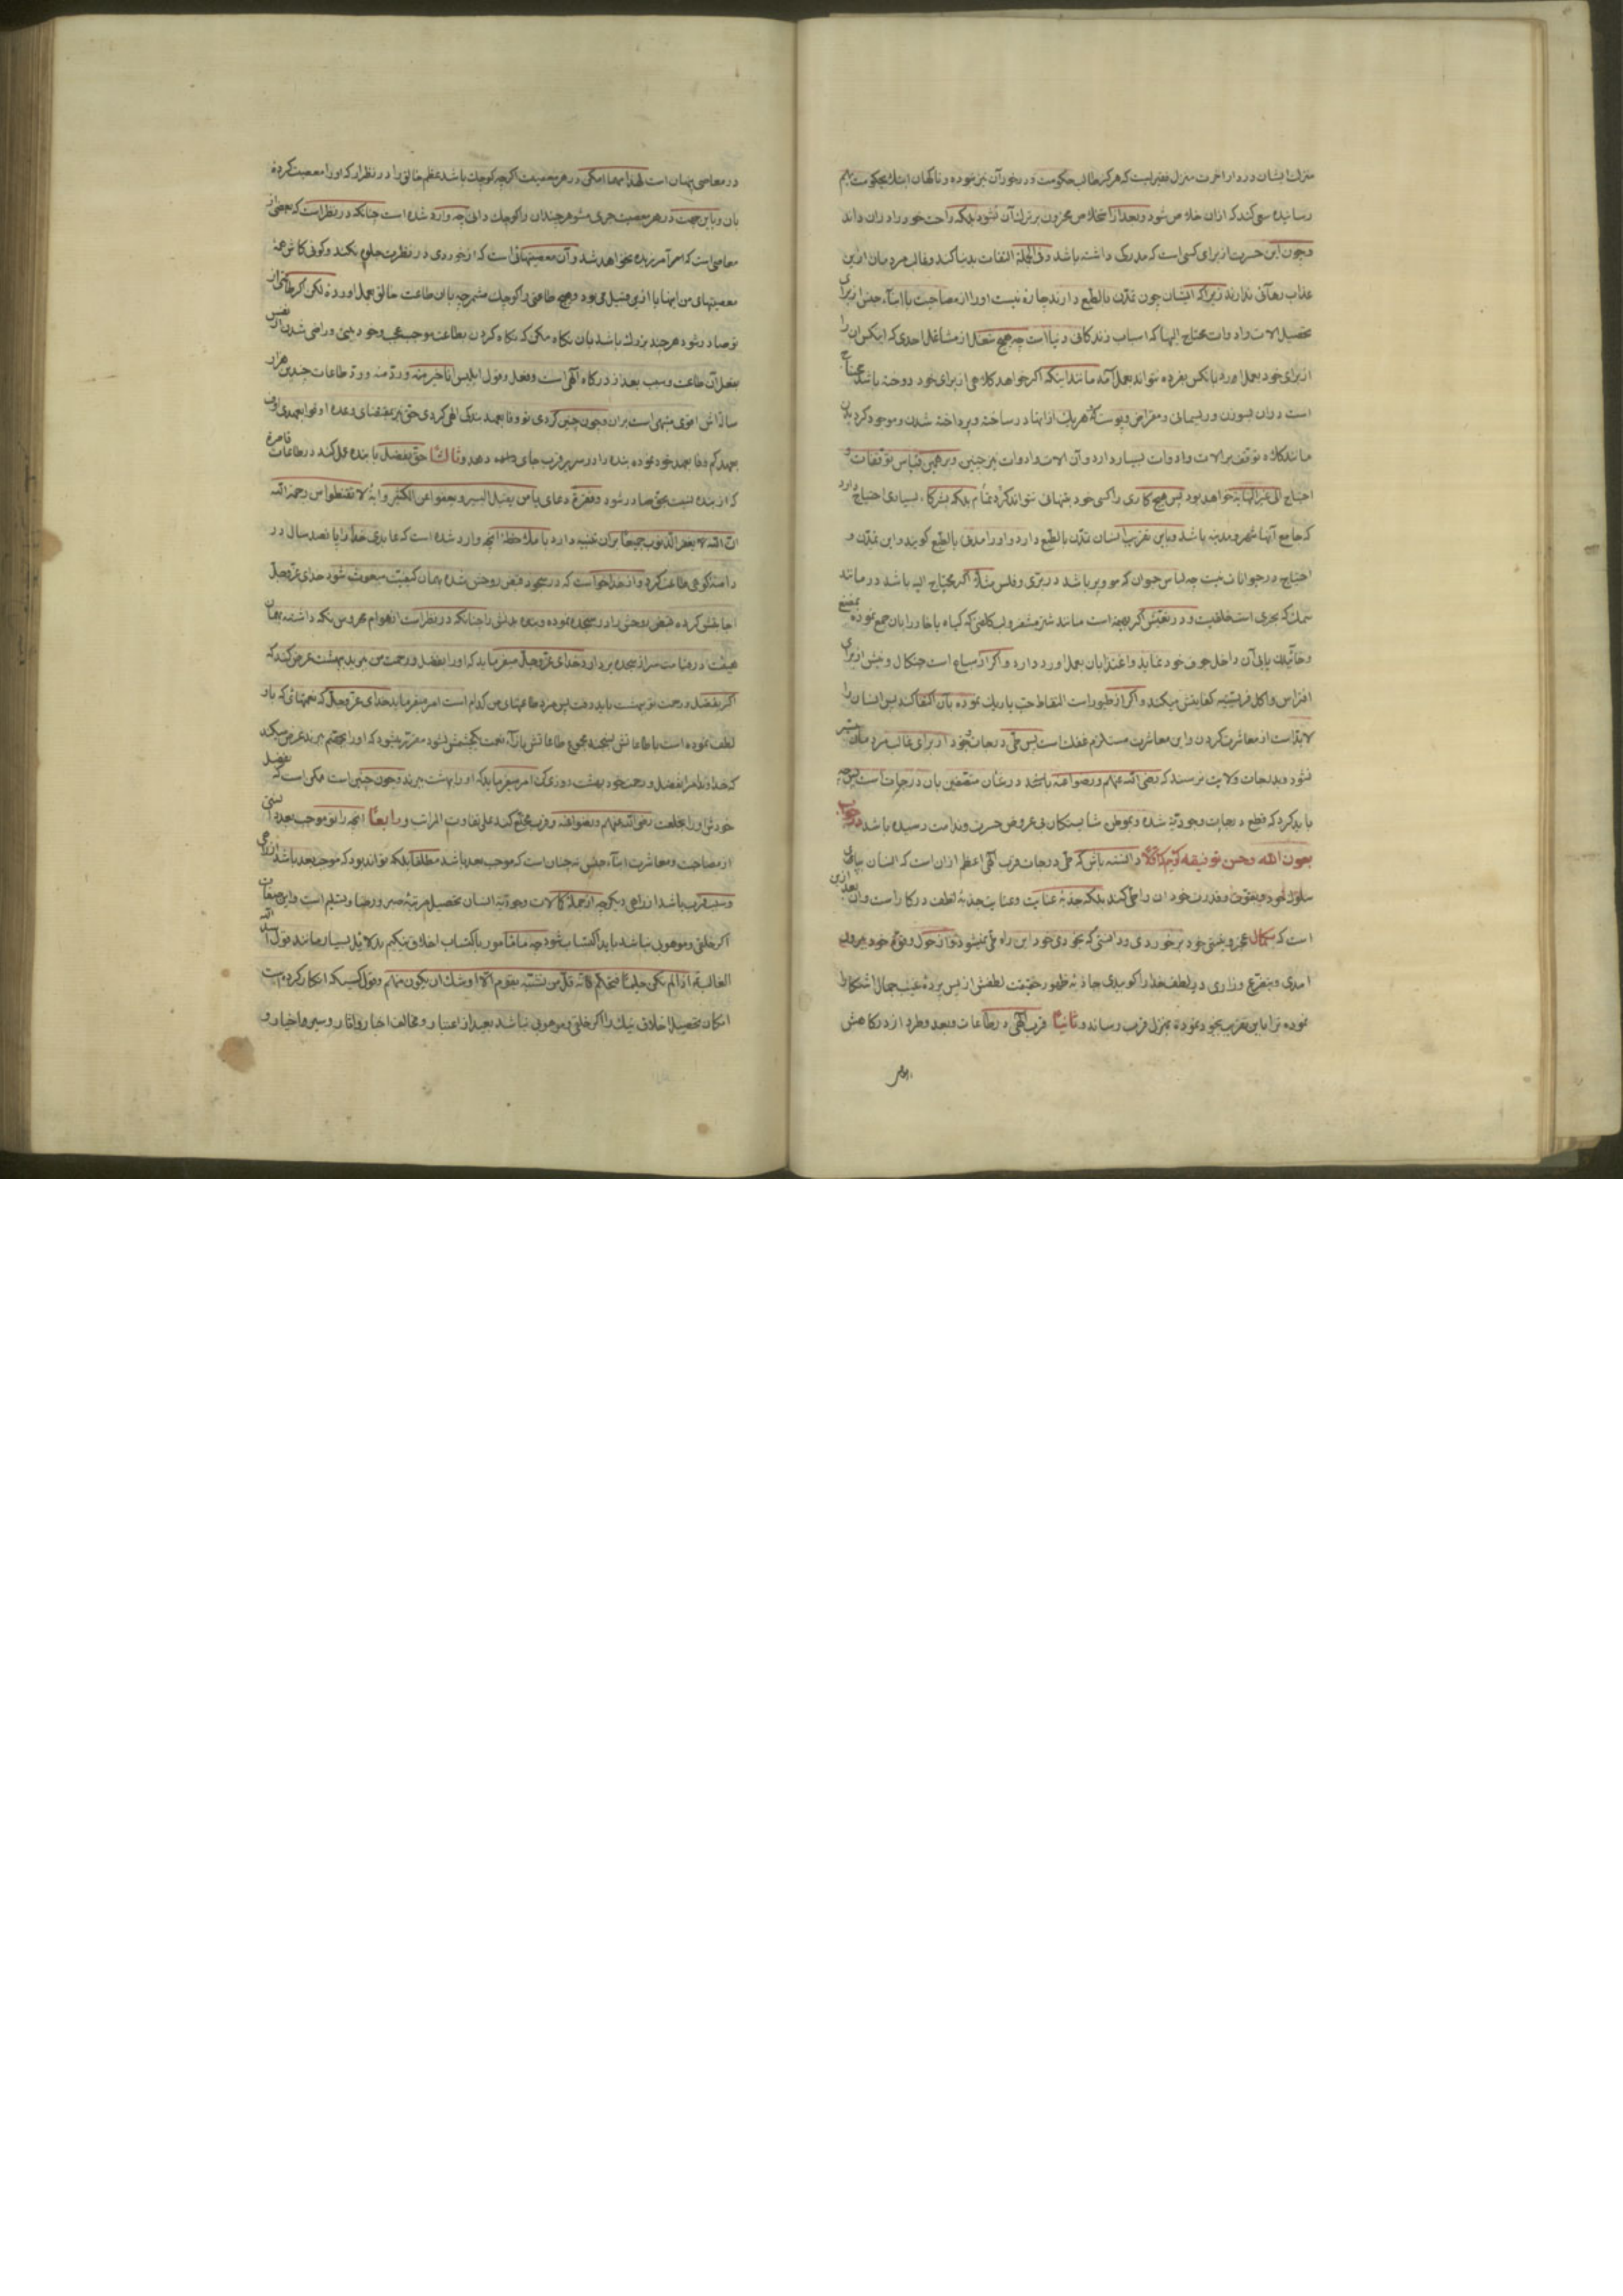 منزل ایشان در دار اخرت منزل فقیریست که هرگز طالب حکومت و درخور آن نیز نبوده و ناگهان اینك بحکومت
رسانیده سعی کند که ازان خلاص شود و بعد از استخلاص محزون بر ترك آن نشود بلکه راحت خود را دران داند
وچون این حسرت از برای کسی است که مدرکی داشته باشد وفی الجملة التفات بدینها کند وغالب مردمان ازین
عذاب رهائی ندارند زیراکه انسان چون تمدّن بالطبع دارند چاره نیست او را از مصاحبت با ابناء جنس از برای
تحصیل الات وادوات محتاج الیها که اسباب زندکانی دنیا است چه هیچ شغل از مشاغل احدی که اینکس ان را
از برای خود بعمل اورد بانکس بفرده نتواند بعمل آمد مانند اینکه اکر خواهد کلاهی از برای خود دوخته باشد محتاج
است دران بسوزن وریسمانی ومقراض وپوست که هریك ازاینها در ساخته وپرداخته شدن وموجود کردیدن
مانند کلاه توقف بر الات وادوات بسیار دارد وآن الات وادوات نیز چنین وبر همین قیاس توقفات و
احتیاج الی غیر النهایه خواهد بود پس هیچ کاری را کسی خود بتنهائی نتواند کرد تمام بلکه بشرکاء بسیاری احتیاج دارد
که جامع آنها شهر ومدینه باشد وباین تقریب انسان تمدّن بالطبع دارد واو را مدنی بالطبع کویند واین تمدّن و
احتیاج در حیوانات نیست چه لباس حیوان که مو وپر باشد در برّی وفلس مثلا اکر محتاج الیه باشد در مانند
سمك که بحری است خلقیست ودر تعیّش اکر بهیمه است مانند شتر مشفر ولب کلفتی که کیاه با خار را بان جمع نموده
وخائیدن یابی آن داخل جوف خود نماید واغتذا بان بعمل اورد دارد واکر از سباع است چنکال ونیش از برای
افتراس واکل فریسته کفایتش میکند واکر از طیور است التقاط حبّ یا ریك نموده بآن اکتفا کند پس انسان را
لابدّ است از معاشرت کردن واین معاشرت مستلزم غفلت است پس طی درجات خود از برای غالب مردمان میسّر
نشود وبدرجات ولایت نرسند که رضی الله عنهم ورضوا عنه باشد در شان متصفین بان درجات است پس چه
باید کرد که قطع درجات وجودیّه شده وبموطن شایستکان بی عروض حسرت وندامت رسیده باشد
بعون الله وحسن توفیقه دانسته باش که طی درجات قرب الهی اعظم ازان است که انسان بپای
سلوك خود وبقوت وقدرت خود ان را طی کند بلکه جذبهٔ عنایت وعنایت جذبهٔ لطف در کار است وان بعد ازین
است که بکمال عجز ونیستی خود برخوردی ودانستی که بخودی خود این راه طی نمیشود واز حول وقوّه خود بیرون
امدی وبتضرع وزاری در لطف خدا را کوبیدی جاذبه ظهور حقیقت لطفش از پس پردهٔ غیب جمال اشکارا
نموده ترا باین تقریب بخود نموده بمنزل قرب رساند وثانیًا قرب الهی در طاعات وبعد وطرد از درکاهش
در معاصی پنهان است لهذا مهما امکن در هر معصیت اکرچه کوچك باشد عظم خالق را در نظر ار که او را معصیت کرده
بان وباین جهت در هر معصیت جری مشو هر چندان را کوچك دانی چه وارد شده است چنانکه در نظر است که بعضی از
معاصی است که امرآمرزیده نخواهد شد وآن معصیتهائی است که از خوردی در نظرت جلوه نکند وکوئی کاش همهٔ
معصیتهای من اینها یا از این قبیل می بود وهیچ طاعتی را کوچك مشمر چه بان طاعت خالق بعمل اورده لکن اکر طاعتی از
تو صادر شود هر چند بزرك باشد بان نکاه مکن که نکاه کردن بطاعت موجب عجب وخود بینی وراضی شدن از نفس
بفعل آن طاعت وسبب بعد از درکاه الهی است وفعل وقول ابلیس انا خیر منه وردّ منه وردّ طاعات چندین هزار
ساله اش اقوی منبهی است بران وچون چنین کردی تو وفا بعهد بندکی الهی کردی حق نیز بمقتضای وعده اوفوا بعهدی اوف
بعهدکم وفا بعهد خود نموده بنده را در سریر قرب جای دهد وثالثًا حق بفضل با بنده عمل کند در طاعات قاصرهٔ
که از بنده نسبت بحق صادر شود وفقرهٔ دعای یا من یقبل الیسیر ویعفو عن الکثیر وایهٔ لا تقنطوا من رحمة الله
انّ الله یغفر الذنوب جمیعًا بران تنبیه دارد با ملاحظهٔ انچه وارد شده است که عابدی خدا را پانصد سال در
دامنه کوهی طاعت کرد واز خدا خواست که در سجود قبض روحش شده بهمان کیفیّت مبعوث شود خدای عزّ وجلّ
اجابتش کرده قبض روحش را در سجده نموده وبنده بدنش را چنانکه در نظر است از هوام محروس نکه داشته بهمان
هیئت در قیامت سر از سجده بردارد خدای عزّ وجلّ میفرماید که او را بفضل ورحمت من ببرید بهشت عرض کند که
اکر بفضل ورحمت تو بهشت باید رفت پس مزد طاعتهای من کدام است امر میفرماید خدای عزّ وجلّ که نعمتهائی که باو
لطف نموده است با طاعاتش بسنجند مجموع طاعاتش بازاء نعمت یکچشمش نشود مقرّر میشود که او را بجهنّم برند عرض میکند
که خداوندا مرا بفضل ورحمت خود بهشت روزی کن امر میفرماید که او را بهشت برند وچون چنین است ممکن است که بفضل
خودش او را بخلعت رضی الله عنهم ورضوا عنه وقرب مخلّع کند علی تفاوت المراتب ورابعًا انچه را تو موجب بعد دانستی
از مصاحبت ومعاشرت ابناء جنس نه چنان است که موجب بعد باشد مطلقًا بلکه تواند بود که موجب بعد باشد از راهی
وسبب قرب باشد از راهی دیکر چه از جملهٔ کمالات وجودیّه انسان تحصیل مرتبهٔ صبر ورضا وتسلیم است واین صفات
اکر خلقی وموهوبی نباشد باید اکتساب شود چه ما مامور باکتساب اخلاق نیکیم بدلائل بسیار مانند قول اسد الله
الغالب اذا لم تکن حلیمًا فتحلّم فانّه قلّ من تشبّه بقوم الّا اوشك ان یکون منهم وقول کسیکه انکار کرده است
امکان تحصیل اخلاق نیك را اکر خلقی وموهوبی نباشد بعید از اعتبار ومخالف اخبار واثار وسیرها خیار و